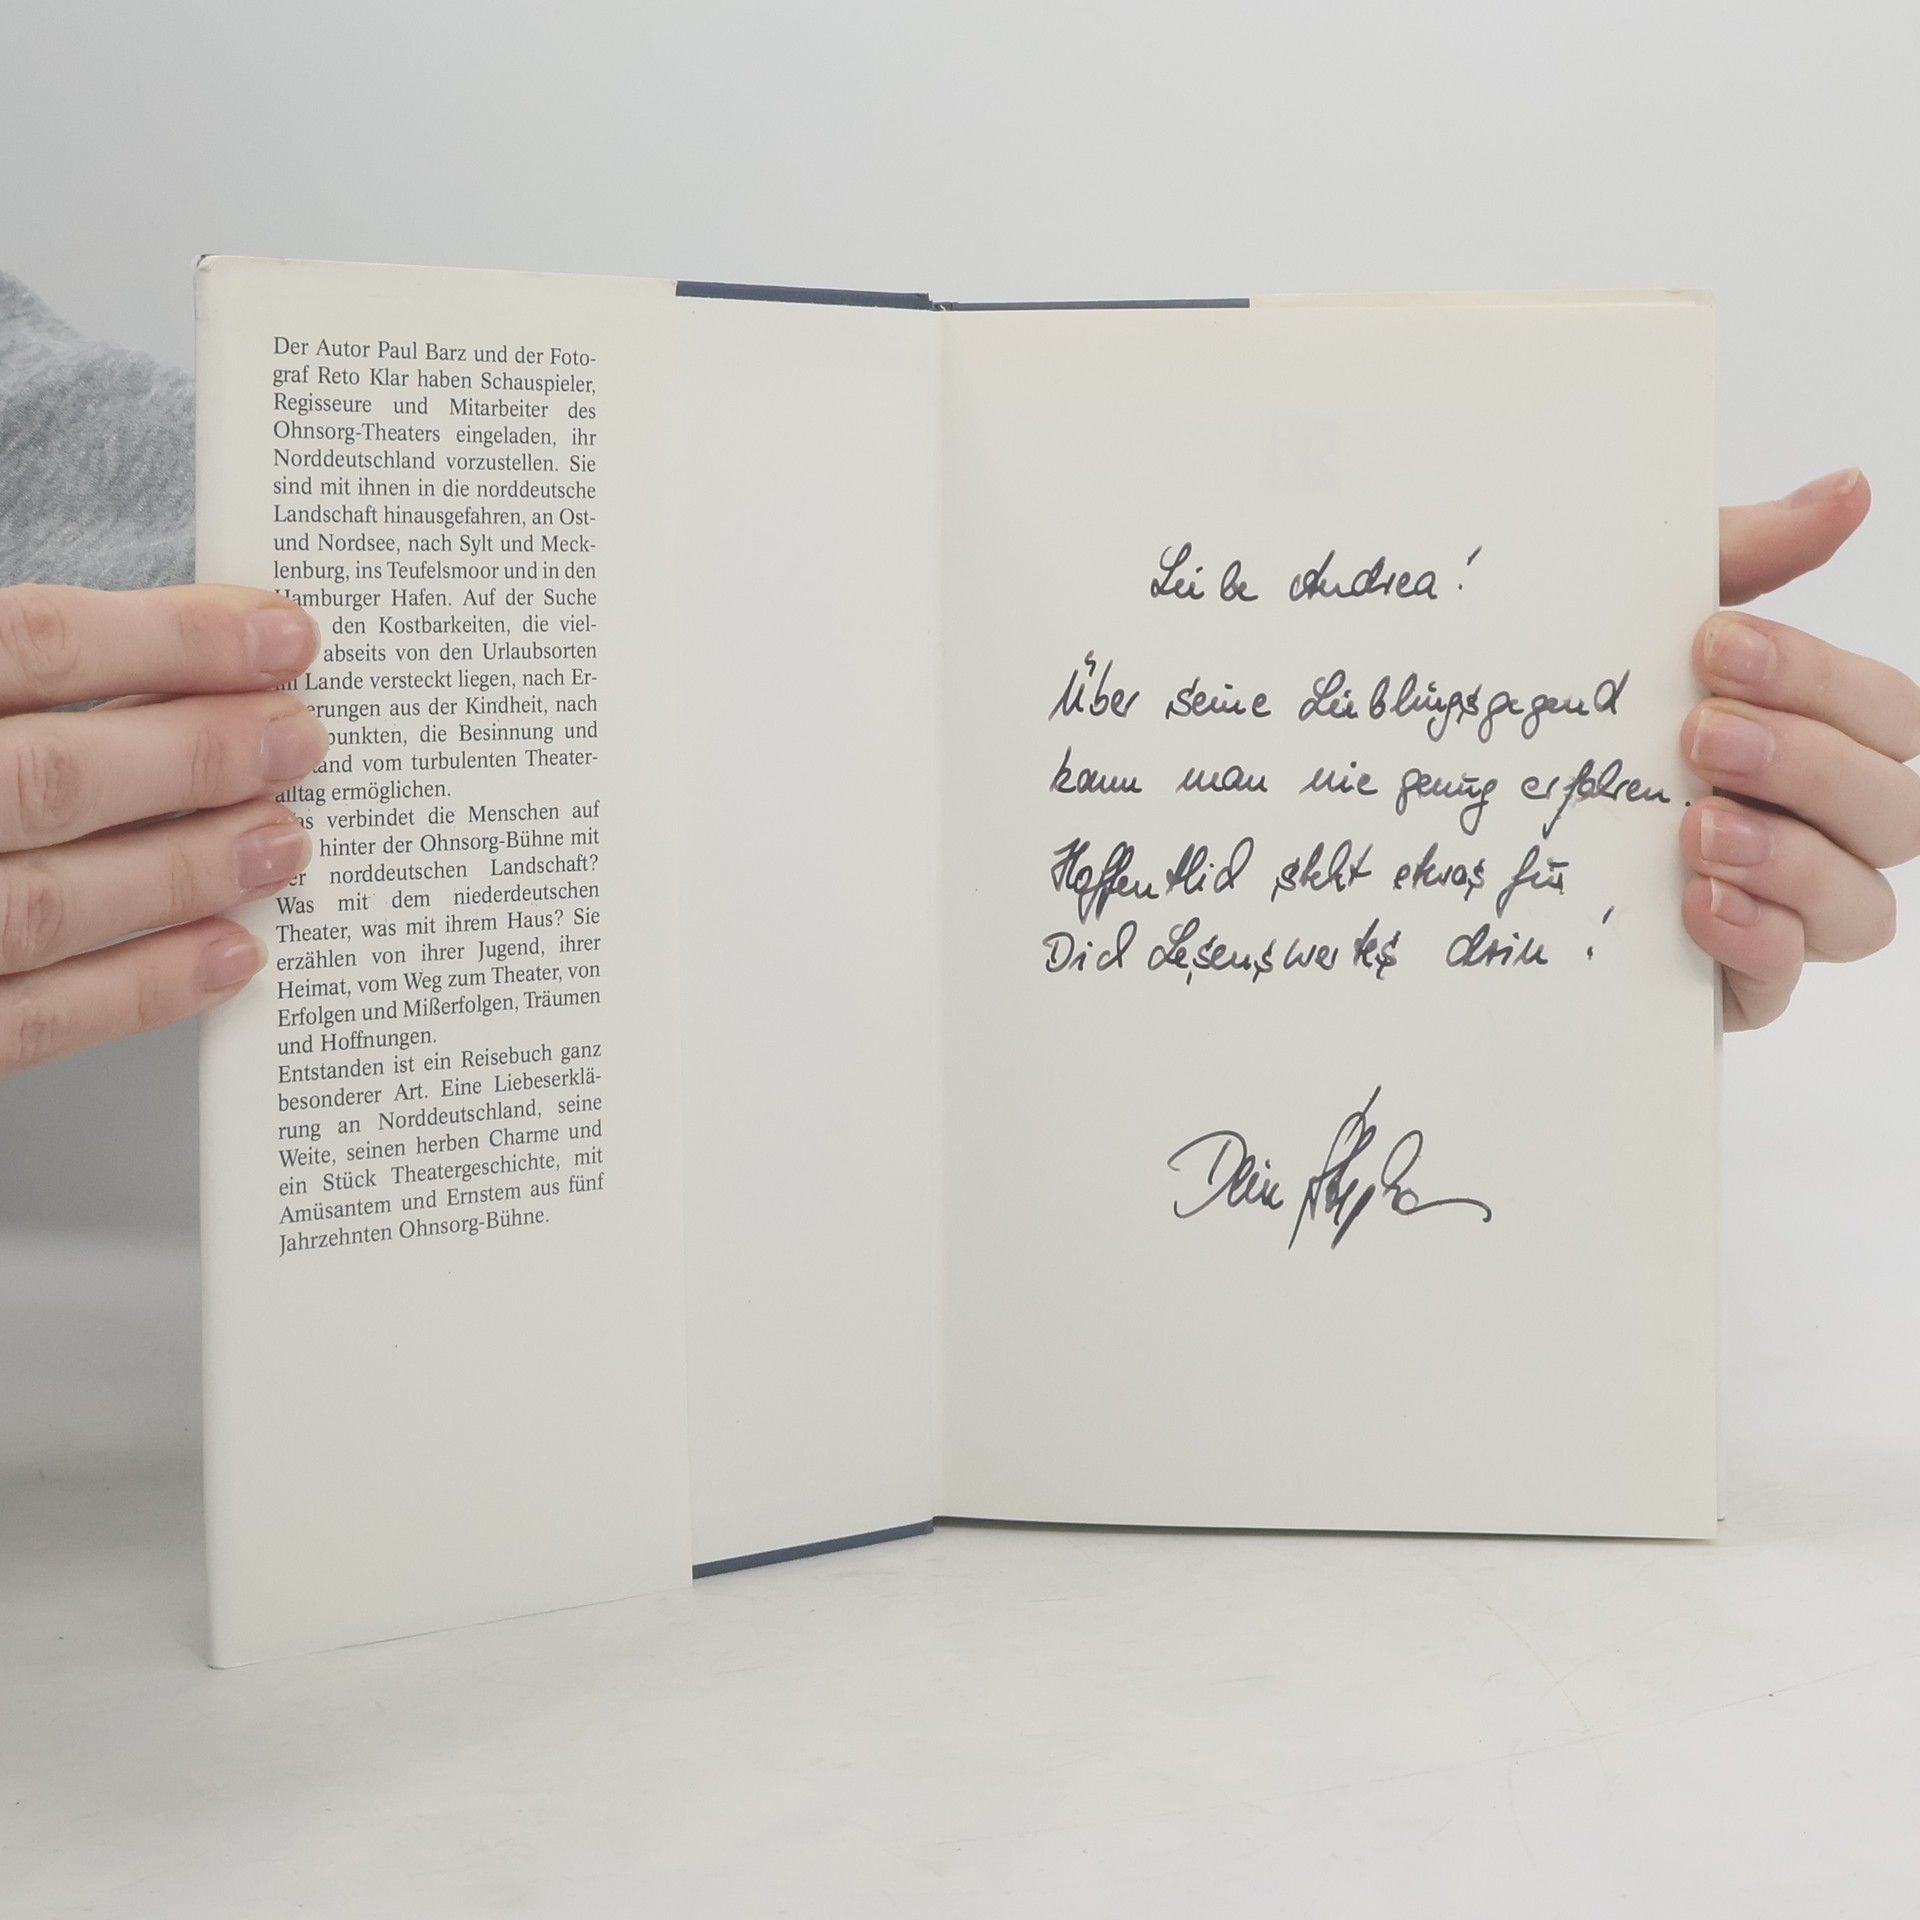 Der Autor Paul Barz und der Foto-
graf Reto Klar haben Schauspieler,
Regisseure und Mitarbeiter des
Ohnsorg-Theaters eingeladen, ihr
Norddeutschland vorzustellen. Sie
sind mit ihnen in die norddeutsche
Landschaft hinausgefahren, an Ost-
und Nordsee, nach Sylt und Meck-
lenburg, ins Teufelsmoor und in den
Hamburger Hafen. Auf der Suche
den Kostbarkeiten, die viel-
abseits von den Urlaubsorten
im Lande versteckt liegen, nach Er-
erungen aus der Kindheit, nach
punkten, die Besinnung und
and vom turbulenten Theater-
alltag ermöglichen.
Was verbindet die Menschen auf
hinter der Ohnsorg-Bühne mit
der norddeutschen Landschaft?
Was mit dem niederdeutschen
Theater, was mit ihrem Haus? Sie
erzählen von ihrer Jugend, ihrer
Heimat, vom Weg zum Theater, von
Erfolgen und Mißerfolgen, Träumen
und Hoffnungen.
Entstanden ist ein Reisebuch ganz
besonderer Art. Eine Liebeserklä-
rung an Norddeutschland, seine
Weite, seinen herben Charme und
ein Stück Theatergeschichte, mit
Amüsantem und Ernstem aus fünf
Jahrzehnten Ohnsorg-Bühne.
Liebe Andrea!
Über seine Lieblingsgegend
kann man nie genug erfahren.
Hoffentlich steht etwas für
Dich Lesenswertes drin!
Dein